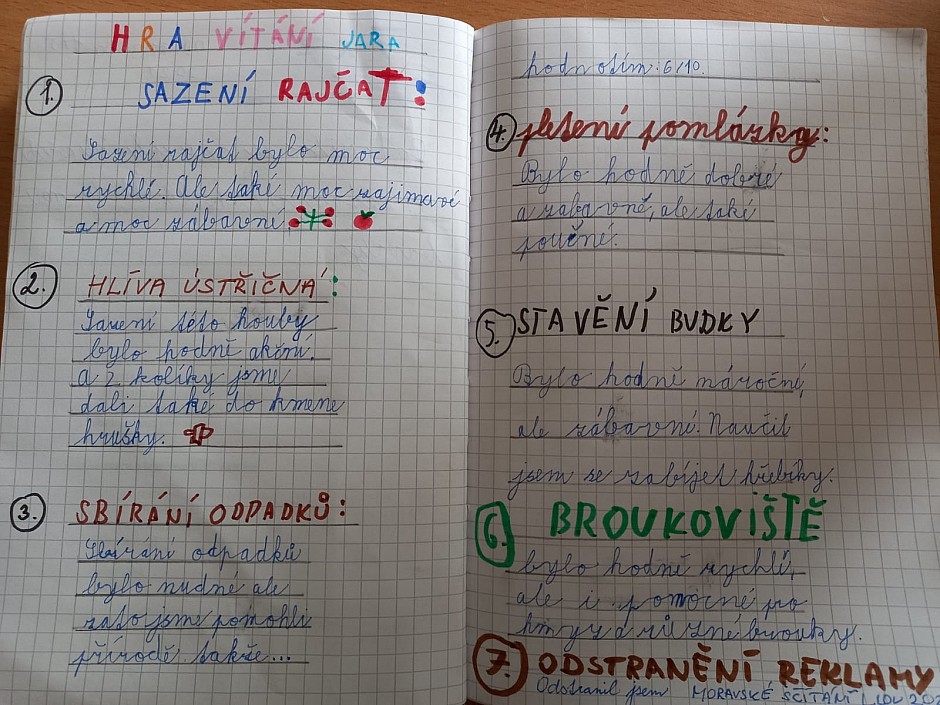 HRA VÍTÁNÍ JARA
1. SAZENÍ RAJČAT:
Sazení rajčat bylo moc
rychlé. Ale také moc zajímavé
a moc zábavní.
2. HLÍVA ÚSTŘIČNÁ:
Sazení této houby
bylo hodně akční.
a 2 kolíky jsme
dali také do kmene
hrušky.
3. SBÍRÁNÍ ODPADKŮ:
Sbírání odpadků
bylo nudné ale
zato jsme pomohli
přírodě. takže...
hodnotím: 6/10.
4. pletení pomlázky:
Bylo hodně dobré
a zabavně, ale také
poučné.
5. STAVĚNÍ BUDKY
Bylo hodně náročný,
ale zábavní. Naučil
jsem se zabíjet hřebíky.
6. BROUKOVIŠTĚ
bylo hodně rychlí,
ale i pomocné po
hmyz a různé brouky.
7. ODSTRANĚNÍ REKLAMY
Odstranil jsem MORAVSKÉ SČÍTÁNÍ LIDU